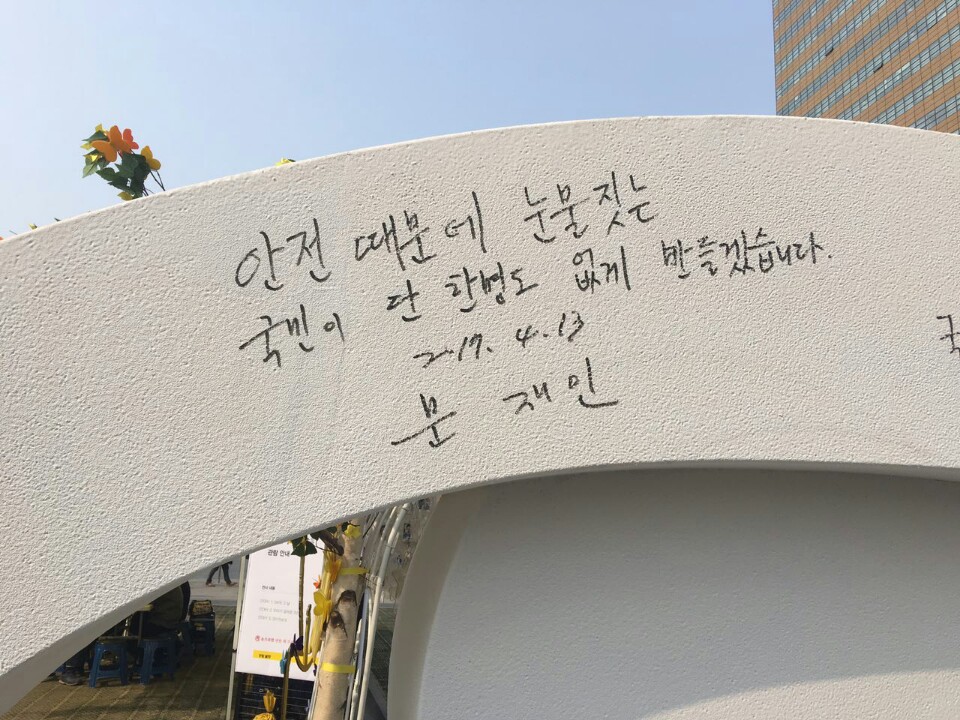 안전 때문에 눈물짓는
국민이 단 한명도 없게 만들겠습니다.
2017. 4. 13
문 재인
국
관람 안내